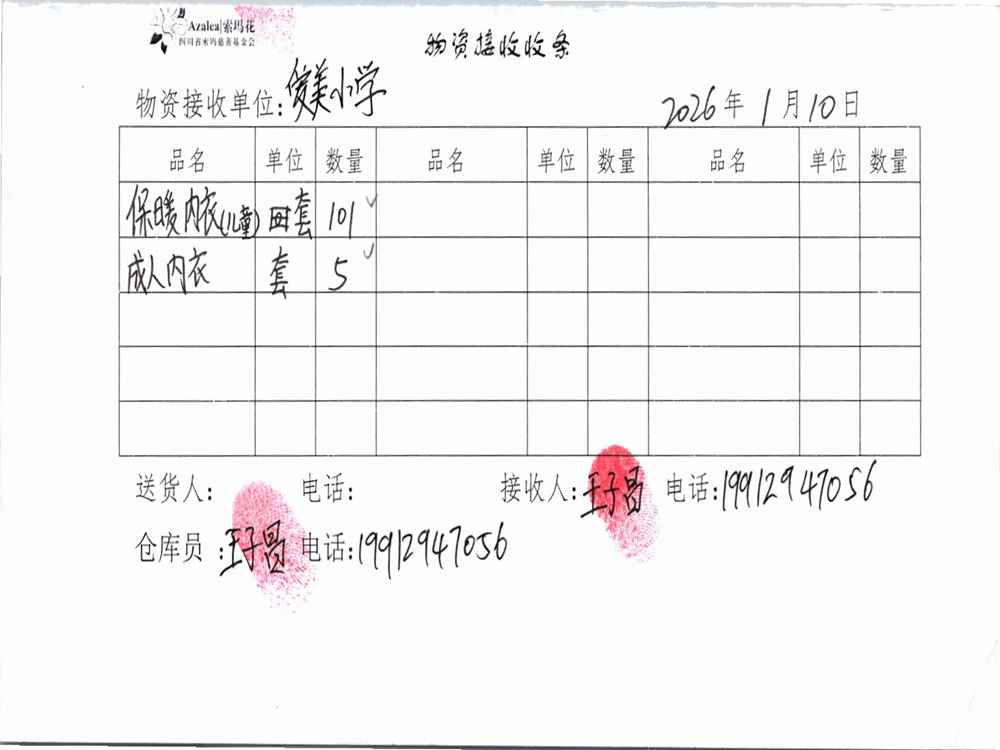 Azalea|索玛花
四川省索玛慈善基金会
物资接收收条
物资接收单位:俊美小学
2026年 1月10日
品名 单位 数量 品名 单位 数量 品名 单位 数量
保暖内衣(儿童) 套 101
成人内衣 套 5
送货人: 电话: 接收人:王子昌 电话:19912947056
仓库员:王子昌 电话:19912947056